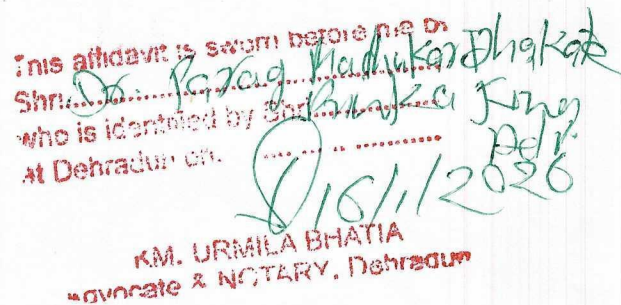 This affidavit is sworn before me by
Shri........Dr. Parag Madhukar Dhakate
who is identified by Shri........
at Dehradun on. ........
16/1/2026
KM. URMILA BHATIA
Advocate & NOTARY, Dehradun